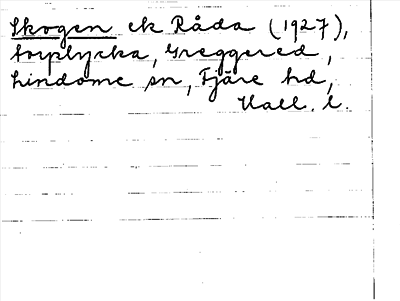 Skogen ek Råda (1927),
torplycka, Greggered,
Lindome sn, Fjäre hd,
Hall. l.